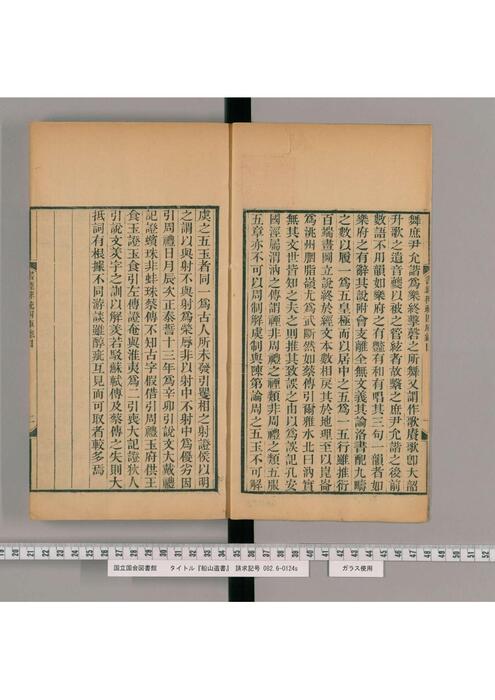 舞庶尹允諧爲樂終擊磬之所舞又謂作歌賡歌卽大韶
升歌之遺音夔以被之管絃者故繫之庶尹允諧之後前
數語不用韻如樂府之有豔有和有唱其三句一韻者如
樂府之有辭其說附會支離全無文義其論洛書配九疇
之數以履一爲五皇極而以居中之五爲一五行雖推衍
百端畫圖立說終於經文本數相戾其於地理至以崑崙
爲洮州胭脂嶺尤爲武斷然如蔡傳引爾雅水北曰汭實
無其文世皆知之夫之則推其致誤之由以爲誤記孔安
國涇屬渭汭之傳謂禋非周禮之禋類非周禮之類五服
五章亦不可以周制解虞制與陳第論周之五玉不可解
虞之五玉者同一爲古人所未發引矍相之射證侯以明
之謂以與射不與射爲榮辱非以射中不射中爲優劣因
引周禮日月辰次正泰誓十三年爲辛卯引說文大戴禮
記證蠙珠非蚌珠蔡傳不知古字假借引周禮玉府供王
食玉證玉食引左傳證奄與淮夷爲二引喪大記證狄人
引說文羑字之訓以解羑若駁蘇軾傳及蔡傳之失則大
抵詞有根據不同游談雖醇疵互見而可取者較多焉
国立国会図書館 タイトル『船山遺書』 請求記号 082.6-O124s ガラス使用